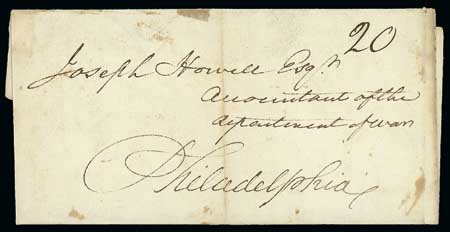 20
Joseph Howell Esqr
Accountant of the
department of war
Philadelphia